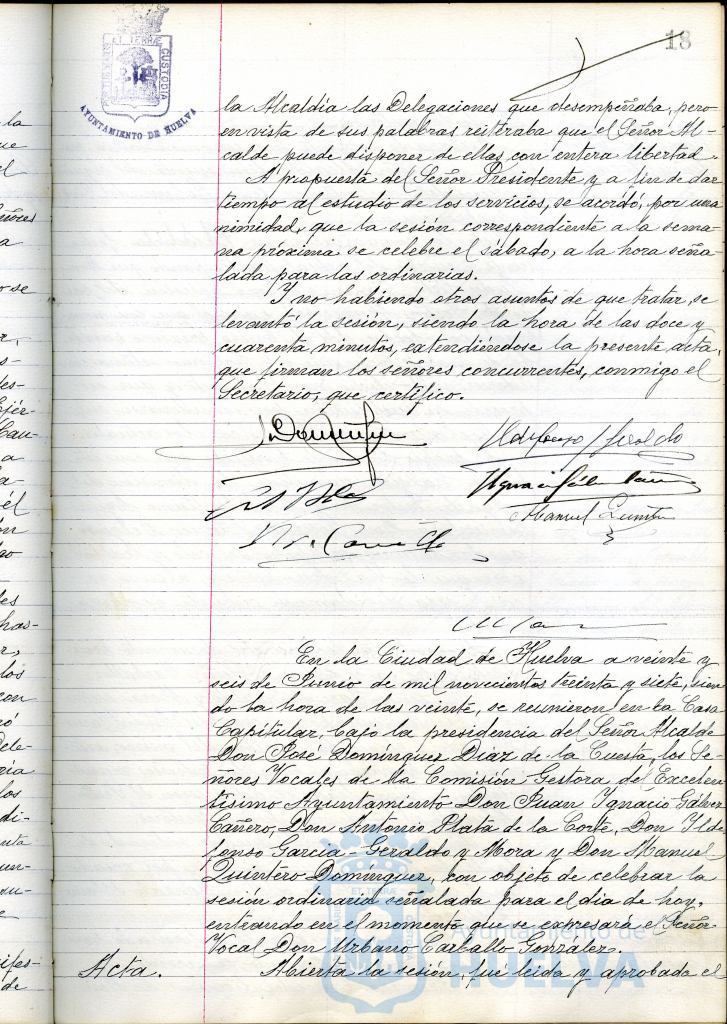 18
ET TERRÆ
CUSTODIA
AYUNTAMIENTO DE HUELVA
la Alcaldia las Delegaciones que desempeñaba, pero
en vista de sus palabras reiteraba que el Señor Al-
calde puede disponer de ellas con entera libertad.
A propuesta del Señor Presidente y a fin de dar
tiempo al estudio de los servicios, se acordó, por una
nimidad, que la sesión correspondiente a la sema-
na próxima se celebre el sábado, a la hora seña-
lada para las ordinarias.
Y no habiendo otros asuntos de que tratar, se
levantó la sesión, siendo la hora de las doce y
cuarenta minutos, extendiéndose la presente acta,
que firman los señores concurrentes, conmigo el
Secretario, que certifico.
Manuel
En la Ciudad de Huelva a veinte y
seis de Junio de mil novecientos treinta y siete, sien
do la hora de las veinte, se reunieron en la Casa
Capitular, bajo la presidencia del Señor Alcalde
Don José Domínguez Diaz de la Cuesta, los Se-
ñores Vocales de la Comisión Gestora del Excelen-
tisimo Ayuntamiento Don Juan Ignacio Gálvez
Cañero, Don Antonio Plata de la Corte, Don Ilde
fonso Garcia-Geraldo y Mora y Don Manuel
Quintero Domínguez, con objeto de celebrar la
sesión ordinaria señalada para el dia de hoy,
entrando en el momento que se expresará el Señor
Vocal Don Urbano Carballo González.
Acta. Abierta la sesión, fue leida y aprobada el
Ayuntamiento de
HUELVA